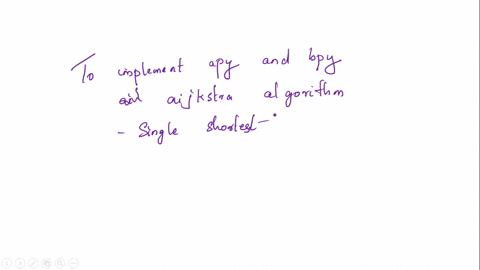 To implement apy and bpy
and aijkstra algorithm
- Single shortest-